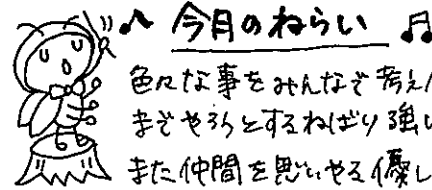 今月のねらい
色々な事をみんなで考え
までやろうとするねばり強い
また仲間を思いやる優し